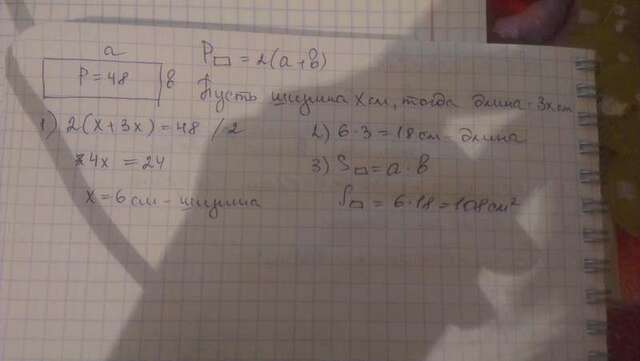 a
P▭ = 2(a+b)
P=48
b
Пусть ширина x см, тогда длина - 3x см
1) 2(x+3x)=48 /2
4x = 24
x=6 см - ширина
2) 6·3=18 см - длина
3) S▭=a·b
S▭ = 6·18=108 см²